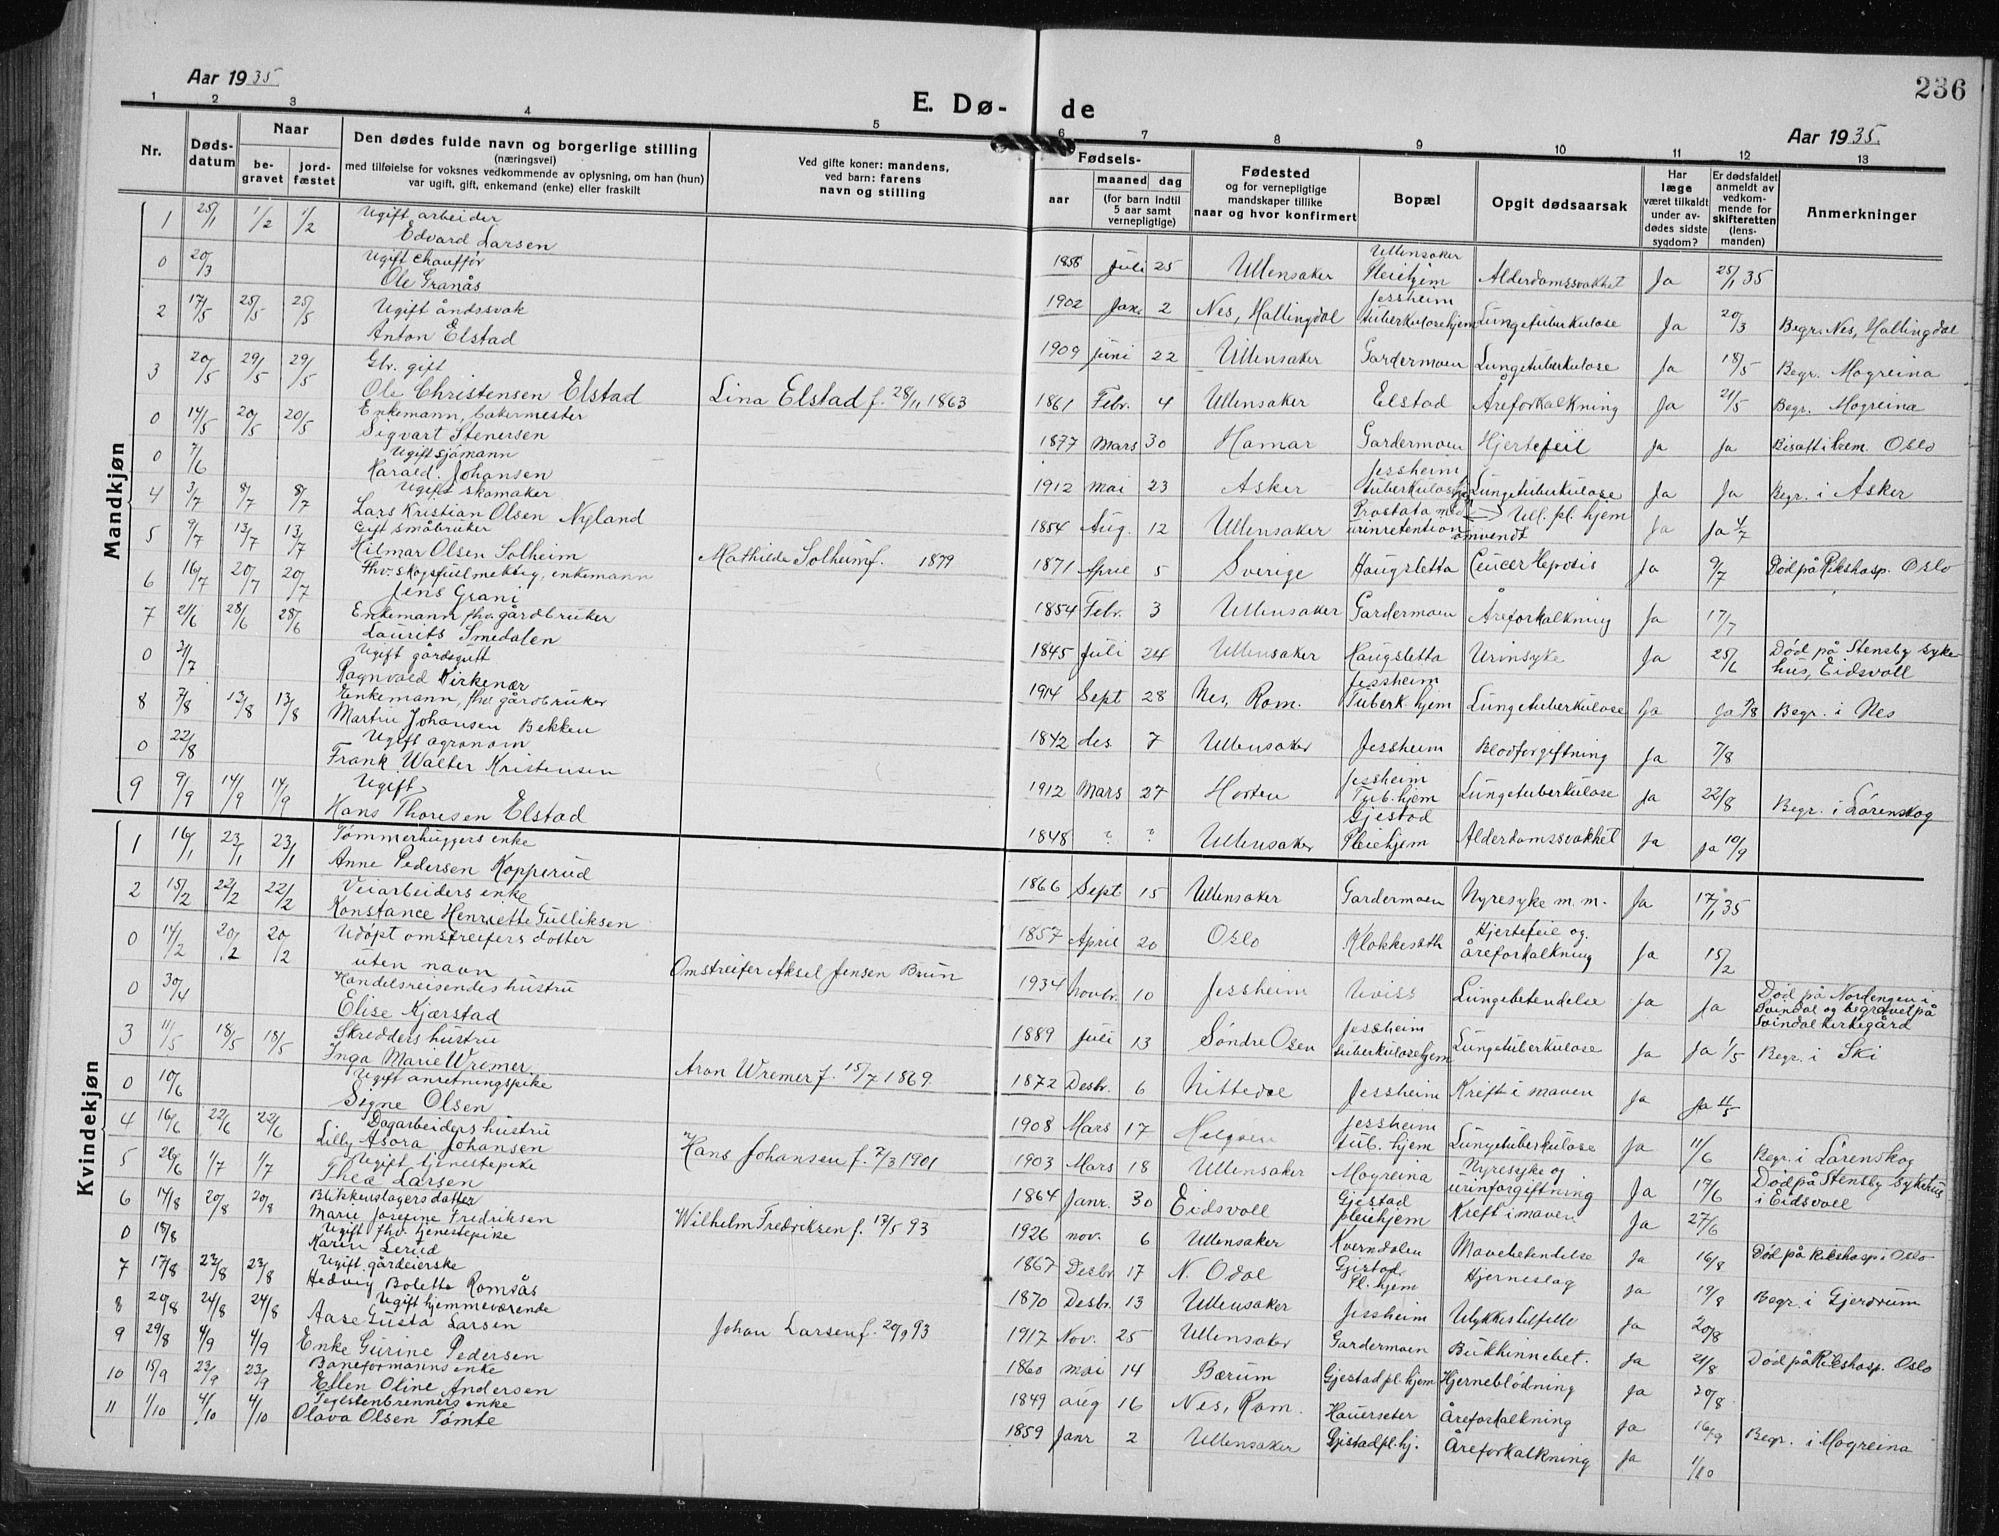 236
Aar 1935
Aar 1935.
E. Dø- de
1 2 3 4 5 6 7 8 9 10 11 12 13
Nr.
Døds-
datum
Naar
be-
gravet
jord-
fæstet
Den dødes fulde navn og borgerlige stilling
(næringsvei)
med tilføielse for voksnes vedkommende av oplysning, om han (hun)
var ugift, gift, enkemand (enke) eller fraskilt
Ved gifte koner: mandens,
ved barn: farens
navn og stilling
Fødsels-
aar
maaned dag
(for barn indtil
5 aar samt
vernepligtige)
Fødested
og for vernepligtige
mandskaper tillike
naar og hvor konfirmert
Bopæl
Opgit dødsaarsak
Har
læge
været tilkaldt
under av-
dødes sidste
sygdom?
Er dødsfaldet
anmeldt av
vedkom-
mende for
skifteretten
(lens-
manden)
Anmerkninger
Mandkjøn
1 25/1 1/2 1/2 Ugift arbeider
Edvard Larsen 1858 Juli 25 Ullensaker Ullensaker Pleiehjem Alderdomssvakhet Ja 25/1 35
0 20/3 Ugift chauffør
Ole Granås 1902 Jan. 2 Nes, Hallingdal Jessheim tuberkulosehjem Lungetuberkulose Ja 20/3 Begr. Nes, Hallingdal
2 17/5 25/5 25/5 Ugift åndssvak
Anton Elstad 1909 Juni 22 Ullensaker Gardermoen Lungetuberkulose Ja 18/5 Begr. Mogreina
3 20/5 29/5 29/5 Gbr. gift
Ole Christensen Elstad Lina Elstad f. 28/11 1863 1861 Febr. 4 Ullensaker Elstad Åreforkalkning Ja 21/5 Begr. Mogreina
0 14/5 20/5 20/5 Enkemann,
Sigvart Stenersen 1877 Mars 30 Hamar Gardermoen Hjertefeil Ja Ja Bisatt i krem. Oslo
0 7/6 Ugift sjømann
Harald Johansen 1912 Mai 23 Asker Jessheim tuberkulosehjem Lungetuberkulose Ja Ja Begr. i Asker
4 3/7 8/7 8/7 Ugift skomaker
Lars Kristian Olsen Nyland 1854 Aug. 12 Ullensaker Prostata med urinretention omvendt Ull. pl. hjem Ja Ja 4/7
5 9/7 13/7 13/7 Gift småbruker
Hilmar Olsen Solheim Mathilde Solheim f. 1879 1871 April 5 Sverige Haugsletta Cancer Ja 9/7 Død på Rikshosp. Oslo
6 16/7 20/7 20/7 Fhv. skogsfullmektig, enkemann
Jens Grani 1854 Febr. 3 Ullensaker Gardermoen Åreforkalkning Ja 17/7
7 21/6 28/6 28/6 Enkemann fhv. gårdbruker
Laurits Smedalen 1845 Juli 24 Ullensaker Haugsletta Urinsyke Ja 25/6 Død på Stensby syke-
hus, Eidsvoll
0 31/7 Ugift gårdsgutt
Ragnvald Kirkenær 1914 Sept 28 Nes, Rom. Jessheim Tuberk. hjem Lungetuberkulose Ja Ja Begr. i Nes
8 7/8 13/8 13/8 Enkemann, fhv. gårdbruker
Martin Johansen Bekken 1842 des. 7 Ullensaker Jessheim Blodforgiftning Ja 7/8
0 22/8 Ugift agronom
Frank Walter Kristensen 1912 Mars 27 Horten Jessheim Tub. hjem Lungetuberkulose Ja 22/8 Begr. i Lørenskog
9 9/9 14/9 14/9 Ugift
Hans Thoresen Elstad 1848 ? ? Ullensaker Gjestad Pleiehjem Alderdomssvakhet Ja Ja 10/9
Kvindekjøn
1 16/1 23/1 23/1 Tømmerhuggers enke
Anne Pedersen Kopperud 1866 Sept 15 Ullensaker Gardermoen Nyresyke m.m. Ja 17/1 35
2 15/2 22/2 22/2 Veiarbeiders enke
Konstance Henriette Gulliksen 1857 April 20 Oslo Klokkesæth Hjertefeil og åreforkalkning Ja 15/2
0 14/2 20/2 20/2 Udøpt omstreifers datter
uten navn Omstreifer Aksel Jensen Brun 1934 Novbr. 10 Jessheim Uviss Lungebetendelse Ja Ja Død på Nordengen i
Svindal og begravet på
Svindal kirkegård
0 30/4 Handelsreisendes hustru
Elise Kjærstad 1889 Juli 13 Søndre Osen Jessheim tuberkulosehjem Lungetuberkulose Ja Ja 1/5 Begr. i Ski
3 11/5 18/5 18/5 Skredders hustru
Inga Marie Wremer Aron Wremer f. 15/7 1869. 1872 Desbr. 6 Nittedal Jessheim Kreft i maven Ja Ja 11/5
0 10/6 Ugift anretningspike
Signe Olsen 1908 Mars 17 Helgøen Jessheim tub. hjem Lungetuberkulose Ja 11/6 Begr. i Lørenskog
4 16/6 22/6 22/6 Dagarbeiders hustru
Lilly Asora Johansen Hans Johansen f. 7/3 1901 1903 Mars 18 Ullensaker Mogreina Nyresyke og urinforgiftning Ja 17/6 Død på Stensby sykehus
i Eidsvoll
5 26/6 1/7 1/7 Ugift tjenestepike
Thea Larsen 1864 Janr. 30 Eidsvoll Gjestad pleiehjem Kreft i maven Ja 27/6
6 14/8 20/8 20/8 Blikkenslagers datter
Marie Josefine Fredriksen Wilhelm Fredriksen f. 17/5 93 1926 nov. 6 Ullensaker Kverndalen Mavebetendelse Ja 16/8 Død på Rikshosp. i Oslo
0 18/8 Ugift fhv. tjenestepike
Karen Lerud 1867 Desbr 17 N. Odal Gjestad Pl. hjem Hjerneslag Ja 19/8 Begr. i Gjerdrum
7 17/8 23/8 23/8 Ugift gårdeierske
Hedvig Bolette Romsås 1870 Desbr. 13 Ullensaker Jessheim Ulykkestilfelle Ja 20/8
8 20/8 24/8 24/8 Ugift hjemmeværende
Aase Gusta Larsen Johan Larsen f. 20/9 93 1917 Nov. 25 Ullensaker Gardermoen Bukhinnebet. Ja 21/8 Død på Rikshosp. Oslo
9 29/8 4/9 4/9 Enke Gurine Pedersen 1860 mai 14 Bærum Gjestad pl. hjem Hjerneblødning Ja
10 15/9 23/9 23/9 Baneformanns enke
Ellen Oline Andersen 1849 aug 16 Nes, Rom. Hauerseter Åreforkalkning Ja 16/9 Begr. i Mogreina
11 1/10 4/10 4/10 Teglstenbrenners enke
Olava Olsen Tømte 1859 Janr 2 Ullensaker Gjestad pl. hj. Åreforkalkning Ja 1/10